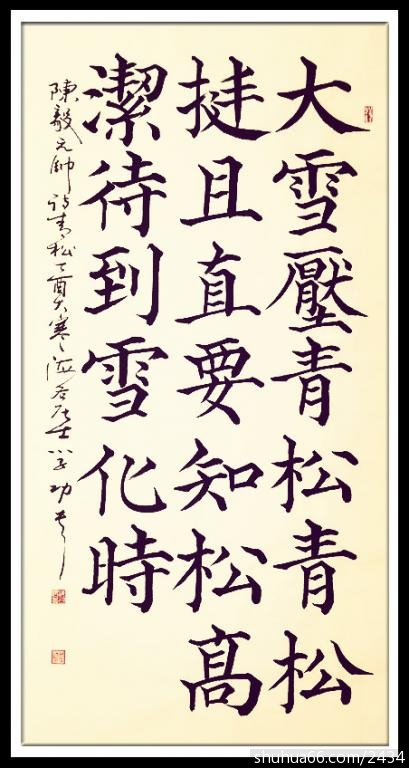 大雪壓青松青松
挺且直要知松髙
潔待到雪化時
陳毅元帥詩青松丁酉大寒
shuhua66.com/2434